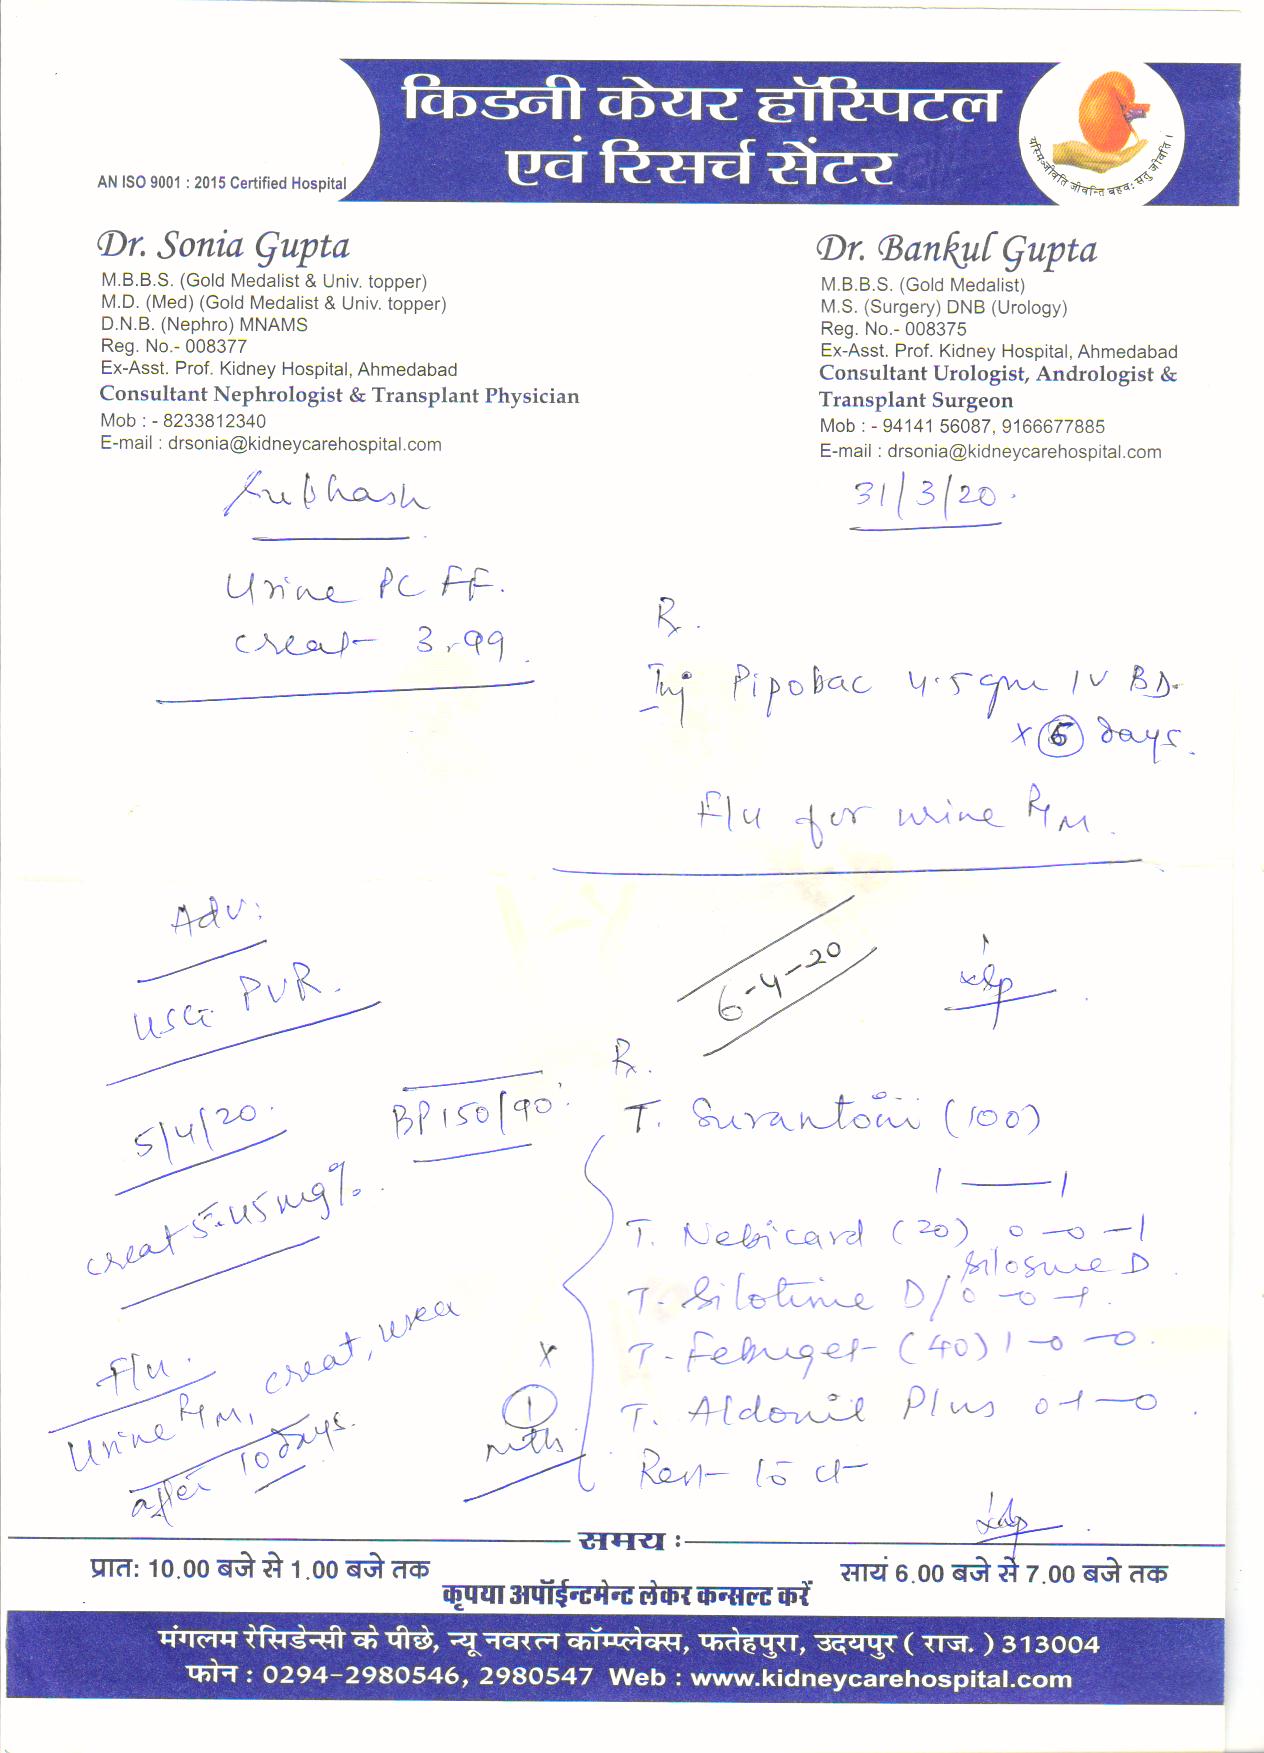 किडनी केयर हॉस्पिटल
एवं रिसर्च सेंटर
यस्मिन् जीवति जीवन्ति बहवः सतु जीवति ।
AN ISO 9001 : 2015 Certified Hospital
Dr. Sonia Gupta
M.B.B.S. (Gold Medalist & Univ. topper)
M.D. (Med) (Gold Medalist & Univ. topper)
D.N.B. (Nephro) MNAMS
Reg. No.- 008377
Ex-Asst. Prof. Kidney Hospital, Ahmedabad
Consultant Nephrologist & Transplant Physician
Mob : - 8233812340
E-mail : drsonia@kidneycarehospital.com
Dr. Bankul Gupta
M.B.B.S. (Gold Medalist)
M.S. (Surgery) DNB (Urology)
Reg. No.- 008375
Ex-Asst. Prof. Kidney Hospital, Ahmedabad
Consultant Urologist, Andrologist &
Transplant Surgeon
Mob : - 94141 56087, 9166677885
E-mail : drsonia@kidneycarehospital.com
Subhash
31/3/20.
Urine PC FF.
creat 3.99
Rx.
Inj Pipobac 4.5 gm IV BD.
x 5 days.
F/u for urine R/M.
Adv:
USG PVR.
6-4-20
5/4/20.
BP 150/90
creat 5.45 mg%.
F/u.
Urine R/M, creat, urea
after 10 days.
Rx.
T. (100)
1 — 1
T. Nebicard (20) 0-0-1
Silosure D
T. Silotime D / 0-0-1.
T. Febuget (40) 1-0-0.
T. Aldonil Plus 0-1-0.
Rest
x
1
mth
समय :
प्रातः 10.00 बजे से 1.00 बजे तक
सायं 6.00 बजे से 7.00 बजे तक
कृपया अपॉईन्टमेन्ट लेकर कन्सल्ट करें
मंगलम रेसिडेन्सी के पीछे, न्यू नवरत्न कॉम्प्लेक्स, फतेहपुरा, उदयपुर ( राज. ) 313004
फोन : 0294-2980546, 2980547 Web : www.kidneycarehospital.com